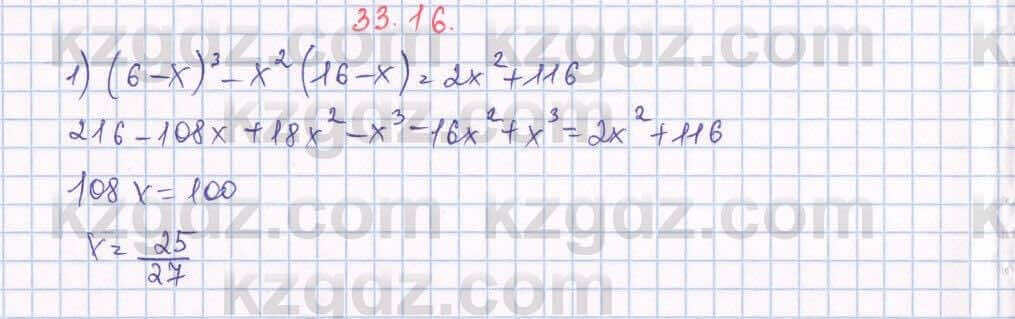 33.16.
1) (6-x)³-x²(16-x)=2x²+116
216-108x+18x²-x³-16x²+x³=2x²+116
108x=100
x=25/27
kzgdz.com
kzgdz.com
kzgdz.com
kzgdz.com
kzgdz.com
kzgdz.com